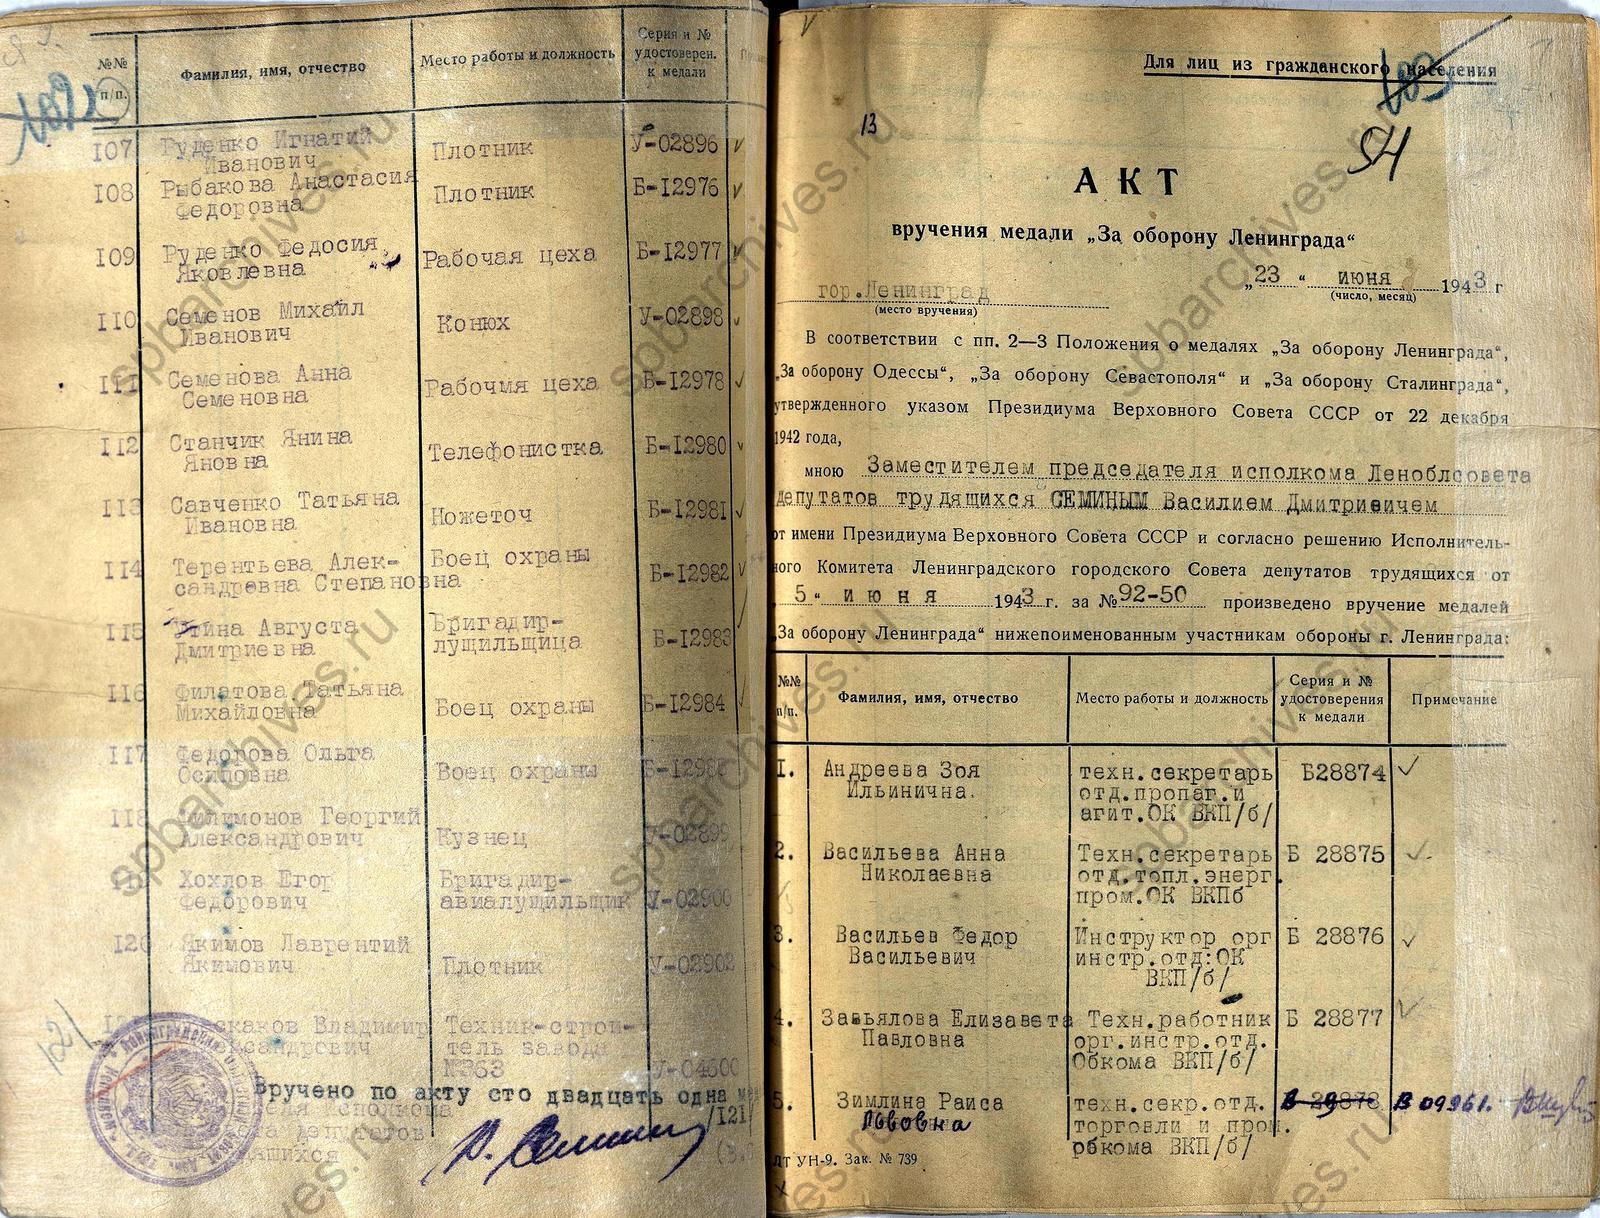 №№
п/п.
Фамилия, имя, отчество
Место работы и должность
Серия и №
удостоверен.
к медали
107 Руденко Игнатий
Иванович
Плотник
У-02896
108 Рыбакова Анастасия
Федоровна
Плотник
Б-12976
109 Руденко Федосия
Яковлевна
Рабочая цеха
Б-12977
110 Семенов Михаил
Иванович
Конюх
У-02898
111 Семенова Анна
Семеновна
Рабочмя цеха
Б-12978
112 Станчик Янина
Яновна
Телефонистка
Б-12980
113 Савченко Татьяна
Ивановна
Ножеточ
Б-12981
114 Терентьева Алек-
сандровна Степановна
Боец охраны
Б-12982
115 Утина Августа
Дмитриевна
Бригадир-
лущильщица
Б-12983
116 Филатова Татьяна
Михайловна
Боец охраны
Б-12984
117 Федорова Ольга
Осиповна
Боец охраны
Б-12985
118 Филимонов Георгий
Александрович
Кузнец
У-02899
119 Хохлов Егор
Федорович
Бригадир-
авиалущильщик
У-02900
120 Якимов Лаврентий
Якимович
Плотник
У-02902
Владимир
Техник-строи-
тель завода
№363
У-04600
Вручено по акту сто двадцать одна
/121/
Для лиц из гражданского населения
13
54
АКТ
вручения медали „За оборону Ленинграда“
гор.Ленинград
(место вручения)
„23“ июня 1943 г
(число, месяц)
В соответствии с пп. 2—3 Положения о медалях „За оборону Ленинграда“,
„За оборону Одессы“, „За оборону Севастополя“ и „За оборону Сталинграда“,
утвержденного указом Президиума Верховного Совета СССР от 22 декабря
1942 года,
мною Заместителем председателя исполкома Леноблсовета
депутатов трудящихся СЕМИНЫМ Василием Дмитриевичем
от имени Президиума Верховного Совета СССР и согласно решению Исполнитель-
ного Комитета Ленинградского городского Совета депутатов трудящихся от
„5“ июня 1943 г. за №92-50 произведено вручение медалей
„За оборону Ленинграда“ нижепоименованным участникам обороны г. Ленинграда:
№№
п/п.
Фамилия, имя, отчество
Место работы и должность
Серия и №
удостоверения
к медали
Примечание
1. Андреева Зоя
Ильинична.
техн.секретарь
отд.пропаг.и
агит.ОК ВКП/б/
Б28874
2. Васильева Анна
Николаевна
Техн.секретарь
отд.топл.энерг.
пром.ОК ВКПб
Б 28875
3. Васильев Федор
Васильевич
Инструктор орг
инстр.отд:ОК
ВКП/б/
Б 28876
4. Завьялова Елизавета
Павловна
Техн.работник
орг.инстр.отд.
Обкома ВКП/б/
Б 28877
5. Зимлина Раиса
Лововна
техн.секр.отд.
торговли и пром.
обкома ВКП/б/
В 09961.
ЛТ УН-9. Зак. № 739
spbarchives.ru